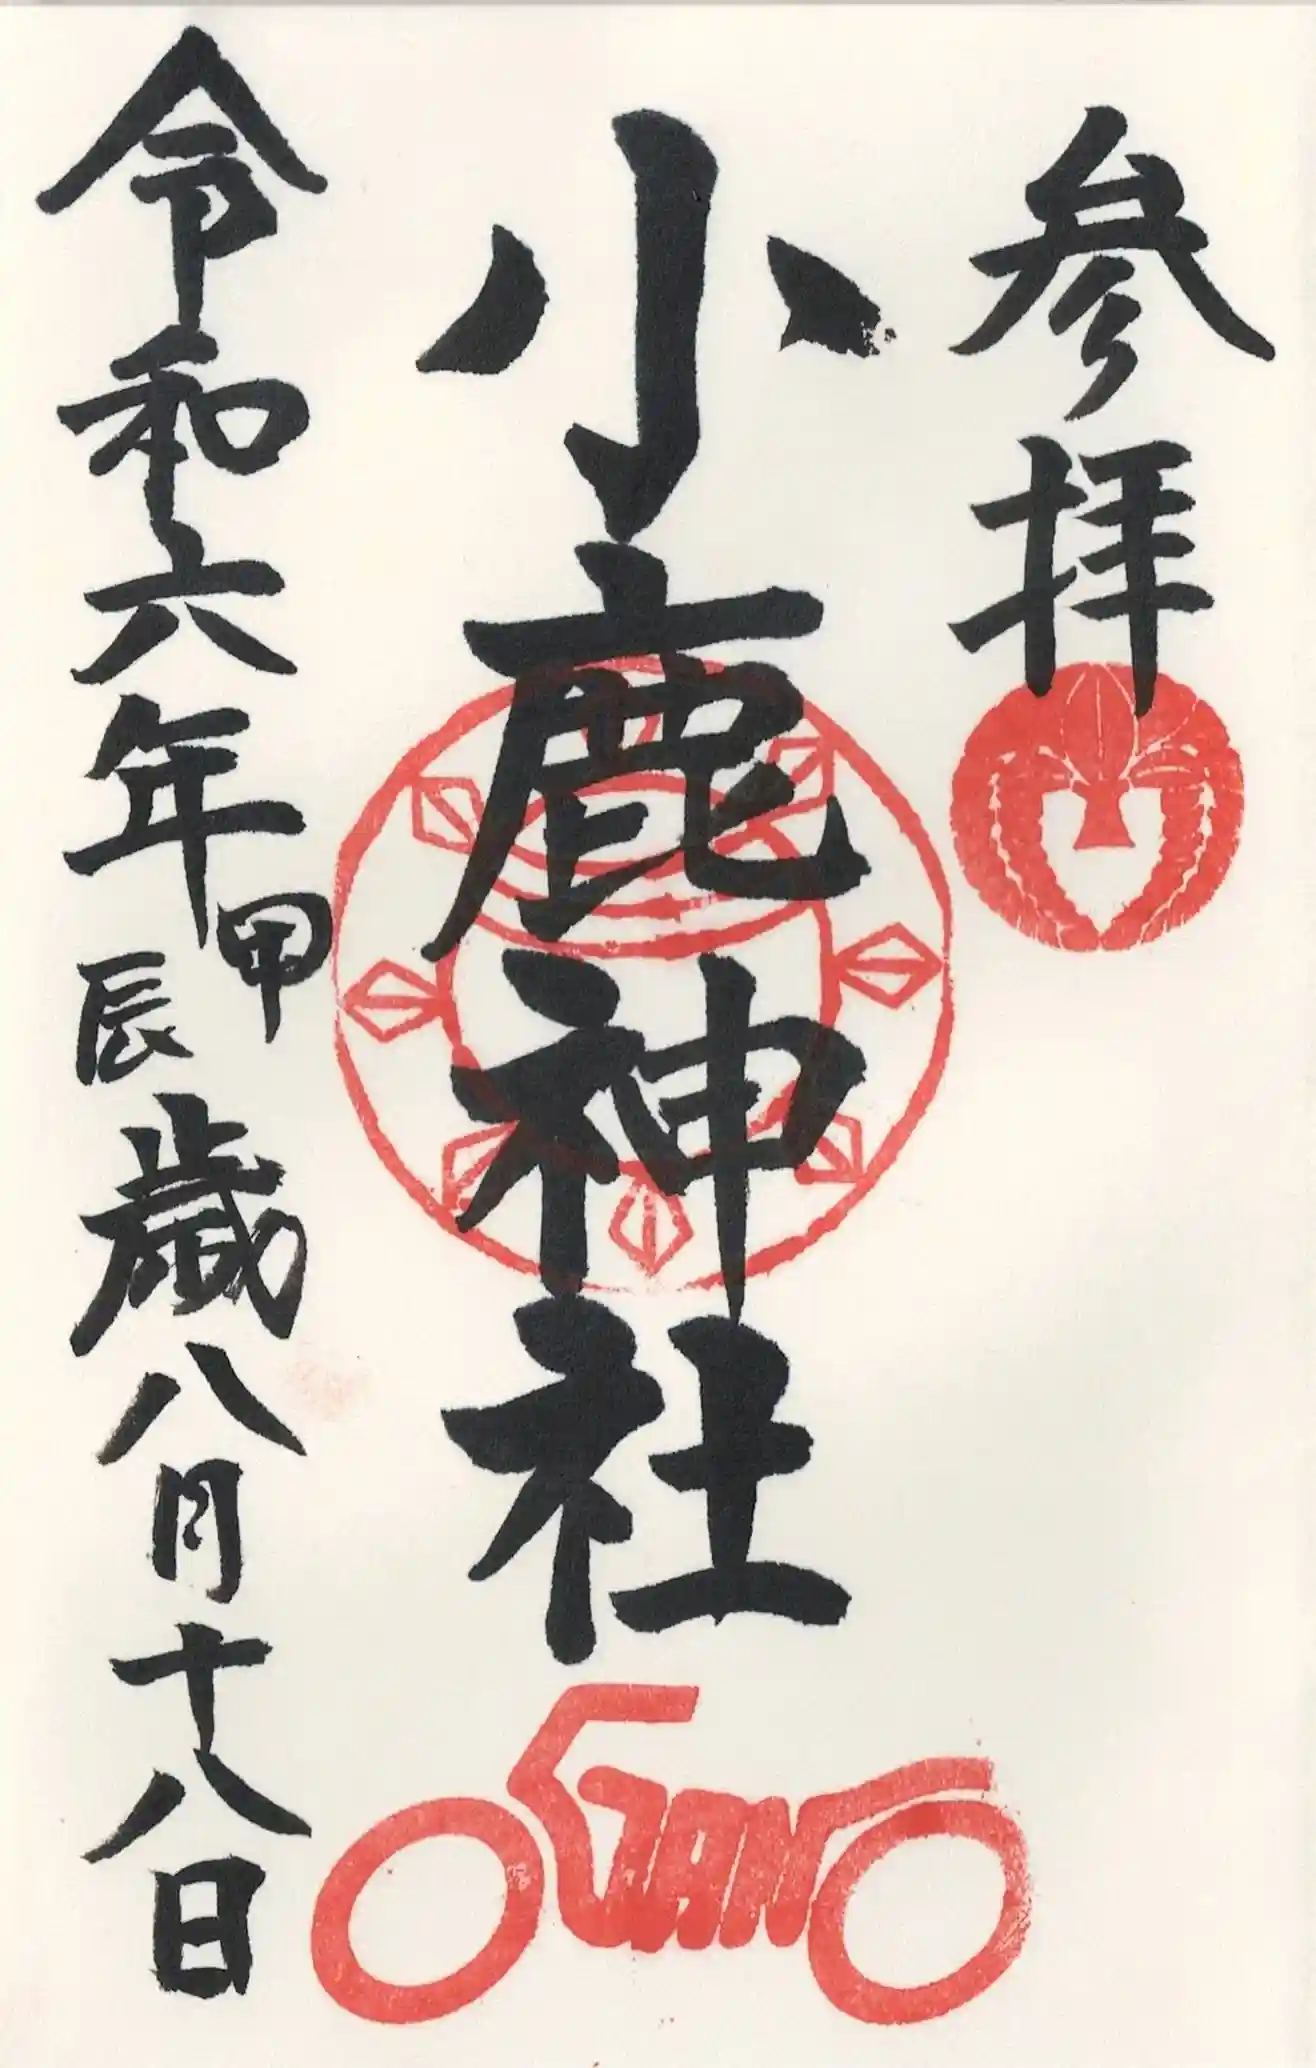 参拝
小鹿神社
令和六年甲辰歳八月十八日